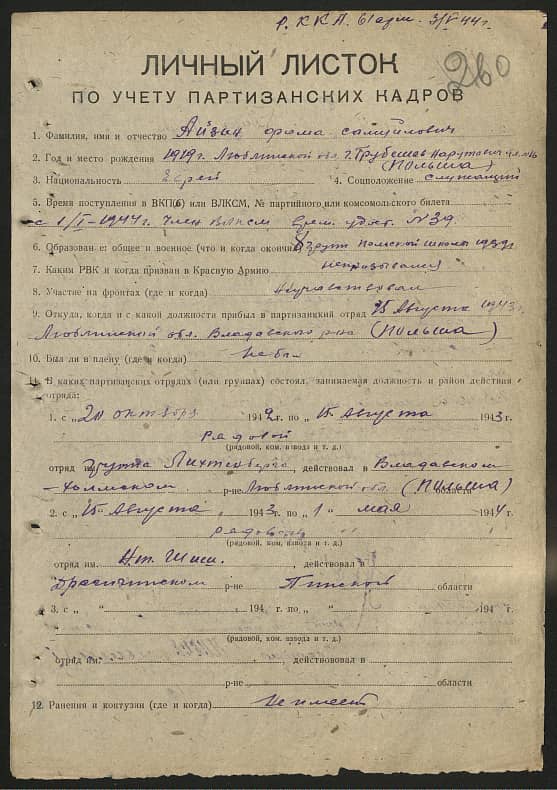 Р.К.К.А. 61 арм. 3/V 44 г.
260
ЛИЧНЫЙ ЛИСТОК
ПО УЧЕТУ ПАРТИЗАНСКИХ КАДРОВ
1. Фамилия, имя и отчество Айзен фрома самуилович
2. Год и место рождения 1919 г. Люблинской обл. г. Грубешев Нарутович ул. №
(Польша)
3. Национальность Еврей 4. Соцположение служащий
5. Время поступления в ВКП(б) или ВЛКСМ, № партийного или комсомольского билета
с 1/I-1944 г. член ВЛКСМ врем. удост. №39
6. Образован е: общее и военное (что и когда окончил) школы 1939 г.
7. Каким РВК и когда призван в Красную Армию непризывался
8. Участие на фронтах (где и когда) Неучаствовал
9. Откуда, когда и с какой должности прибыл в партизанский отряд 15 Августа 1943 г.
Люблинской обл. Владавского р-на (Польша)
10. Был ли в плену (где и когда) Не был
11. В каких партизанских отрядах (или группах) состоял, занимаемая должность и район действия
отряда:
1. с „20 октября 1942 г. по „15 Августа 1943 г.
Рядовой
(рядовой, ком. взвода и т. д.)
отряд им. группа Лихтенберга, действовал в Владавском
-Холмском р-не Люблинской обл. (Польша) области
2. с „15 Августа 1943 г. по „1 “ мая 1944 г.
рядовой
(рядовой, ком. взвода и т. д.)
отряд им. действовал в
Дрогичинском р-не Пинской области
3. с „ “ 194 г. по „ “ 194 г.
(рядовой, ком. взвода и т. д.)
отряд им. действовал в
р-не области
12. Ранения и контузии (где и когда) Не имеет